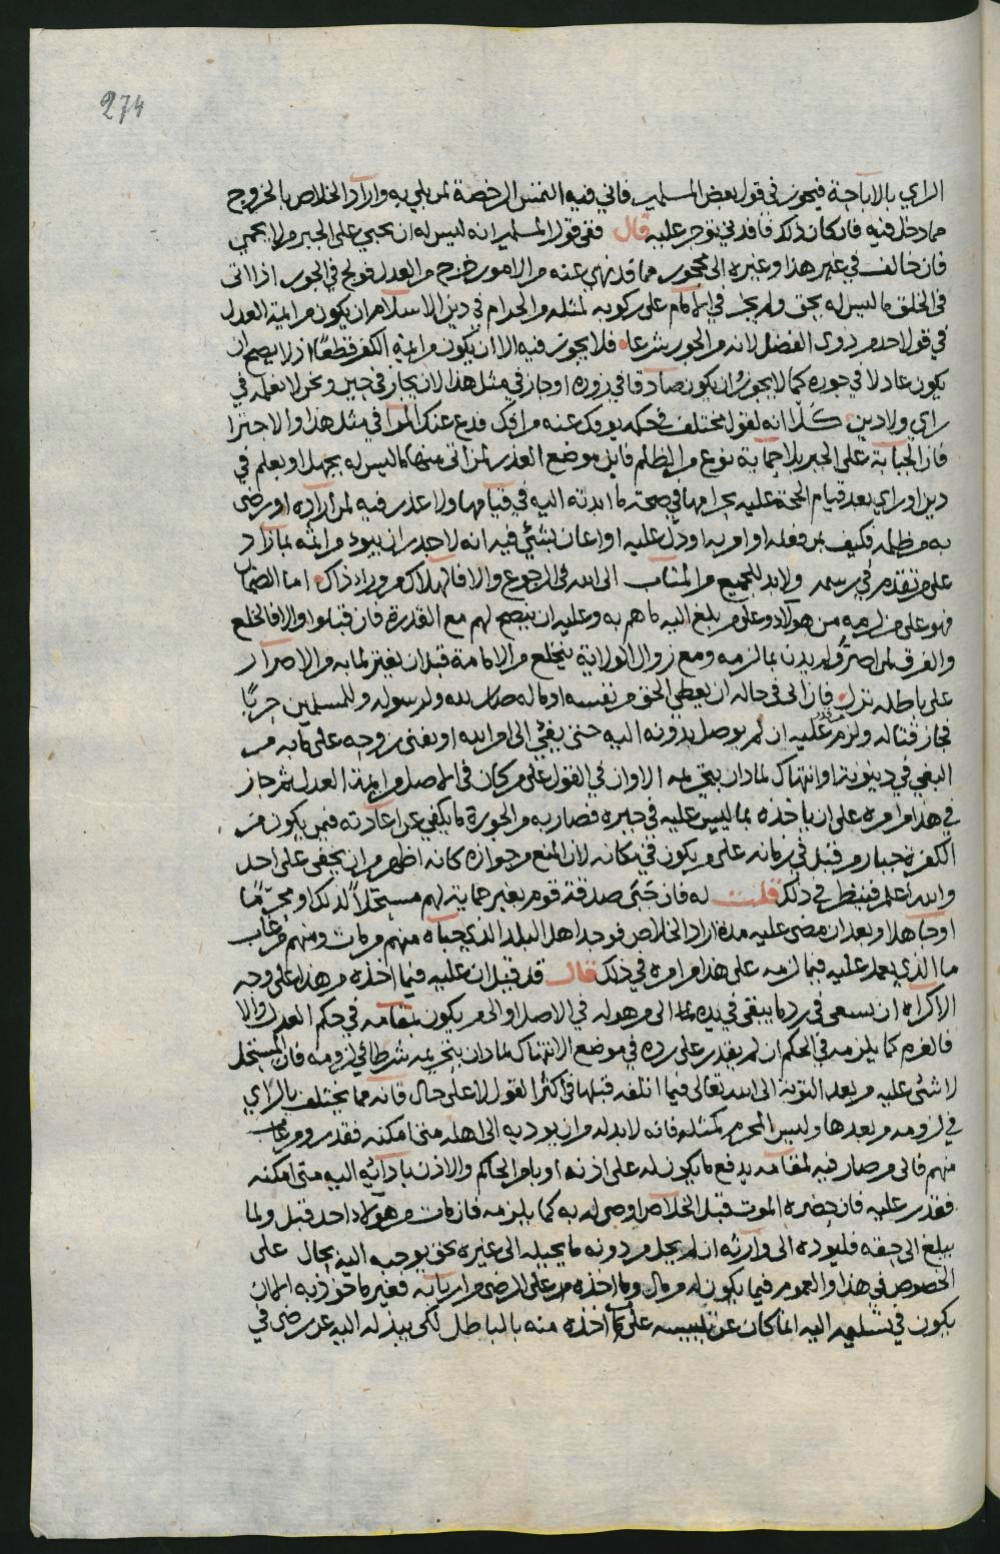 274
الراي بالاباحة فيجوز في قول بعض المسلمين فاني فيه التمس الرخصة لمن بلي به واراد الخلاص بالخروج
مما دخل فيه فان كان ذلك فافدني تؤجر عليه قال ففي قول المسلمين انه ليس له ان يجبي على الجبر من لا يحمي
فان خالف في غير هذا وغيره الى محجور مما قد نهي عنه من الامور خرج من العدل فولج في الجور اذا اتى
في الخلق ما ليس له بحق ولم يجز في الامام على ركوبه لمثله من الحرام في دين الاسلام ان يكون من ايمة العدل
في قول احد من ذوي الفضل لانه من الجور شرعا فلا يجوز فيه الا ان يكون من ايمة الكفر قطعا اذ لا يصح ان
يكون عادلا في جوره كما لا يجوز ان يكون صادقا في زوره او جاز في مثل هذا لان يجاز في حين ونحن لا نعلمه في
راي ولا دين كلا انه لقول مختلف في حكمه يوفك عنه من افك فدع عنك المرا في مثل هذا والاجترا
فان الجباية على الجبر بلا حماية نوع من الظلم فاين موضع العذر لمن اتى منهما ما ليس له بجهل او بعلم في
دين او راي بعد قيام الحجة عليه بحرامها في صحة ما ابدته اليه في قيامها ولا عذر فيه لمن اراده او رضي
به من ظلمه فكيف بمن فعله او امر به او دل عليه او اعان بشي فيه انه لاجدر ان يبوء من اثمه بما زاد
على من تقدم في رسمه ولا بد للجميع من المتاب الى الله في الرجوع والا فالهلاك من وراء ذاك اما الضمان
فهو على من لزمه من هولاء وعلى من بلغ اليه ما هم به وعليه ان ينصح لهم مع القدرة فان قبلوا والا فالخلع
والفرق لمن اصر ولم يدن بما لزمه ومع زوال الولاية ينخلع من الامامة قبل ان يغتر لما به من الاصرار
على باطله نزل فان ابى في حاله ان يعطي الحق من نفسه او ماله صار لله ولرسوله وللمسلمين حربا
فجاز قتاله ولزم من قدر عليه ان لم يوصل بدونه اليه حتى يفي الى امر الله او يفنى روحه على ما به من
البغي في دينونة او انتهاك لما دان بتحريمه الا وان في القول على من كان في الاصل من ايمة العدل ثم جاز
في هذا من امره على ان ياخذه بما ليس عليه في جبره فصار به من الجورة ما يكفي عن اعادته فيمن يكون من
الكفرة جبارا من قبل في زمانه على من يكون في مكانه لان المنع من جوازه كانه اظهر من ان يخفى على احد
والله اعلم فينظر في ذلك قلت له فان جبى صدقة قوم بغير حماية لهم مستحلا لذلك او محرما
او جاهلا وبعد ان مضى عليه مدة اراد الخلاص فوجد اهل البلد الذي جباه منهم من مات ومنهم من غاب
ما الذي يعمد عليه فيما لزمه على هذا من امره في ذلك قال قد قيل ان عليه فيما اخذه من هذا على وجه
الاكراه ان يسعى في رد ما يبقى في يده لما الى من هو له في الاصل او الى من يكون بمقامه في حكم العدل والا
فالغرم كما يلزمه في الحكم ان لم يقدر على رده في موضع الانتهاك لما دان بتحريمه شرطا في لزومه فان المستحل
لا شي عليه من بعد التوبة الى الله تعالى فيما اتلفه قبلها في اكثر القول لا على حال فانه مما يختلف بالراي
في لزومه من بعدها وليس المحرم كمثله فانه لا بد له من ان يوديه الى اهله متى امكنه فقدر ومن غاب
منهم فالى من صار فيه لمقامه يدفع ما يكون له على اذنه او يامر الحاكم والاذن بادائه اليه متى امكنه
فقدر عليه فان حضره الموت قبل الخلاص اوصى له به كما يلزمه فان مات من هولاء احد قبل ولما
يبلغ الى حقه فليوده الى وارثه ان لم يحل من دونه ما يحيله الى غيره بحق يوجبه اليه بحال على
الخصوص في هذا والعموم فيما يكون له من مال وما اخذه من على الرضى من اربابه فغير ماخوذ به الا ان
يكون في تسليمه اليه انما كان عن تلبيسه على ما اخذه منه بالباطل لكي يبذله اليه عن رضى في